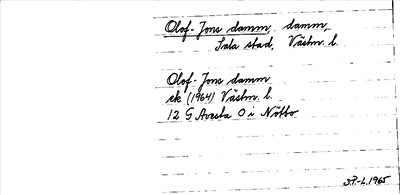 Olof-Jons damm, damm,
Sala stad, Västm. l.
Olof-Jons damm
ek (1964) Västm. l.
12 G Avesta 0 i Nötbo
1965